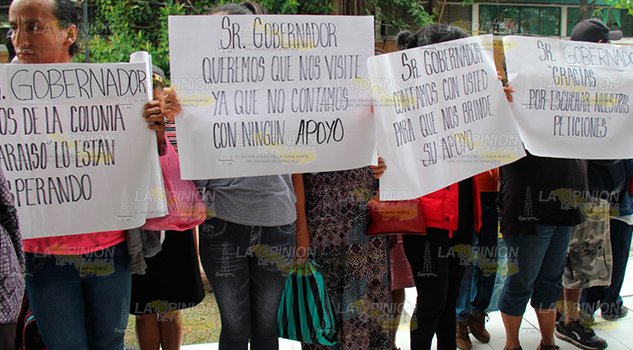 R. GOBERNADOR
OS DE LA COLONIA
ARAISO LO ESTAN
PERANDO
SR. GOBERNADOR
QUEREMOS QUE NOS VISITE
YA QUE NO CONTAMOS
CON NINGUN APOYO
SR. GOBERNADOR
CONTAMOS CON USTED
PARA QUE NOS BRINDE
SU APOYO
SR. GOBERNADOR
GRACIAS
POR ESCUCHAR NUESTRAS
PETICIONES
LA OPINIÓN